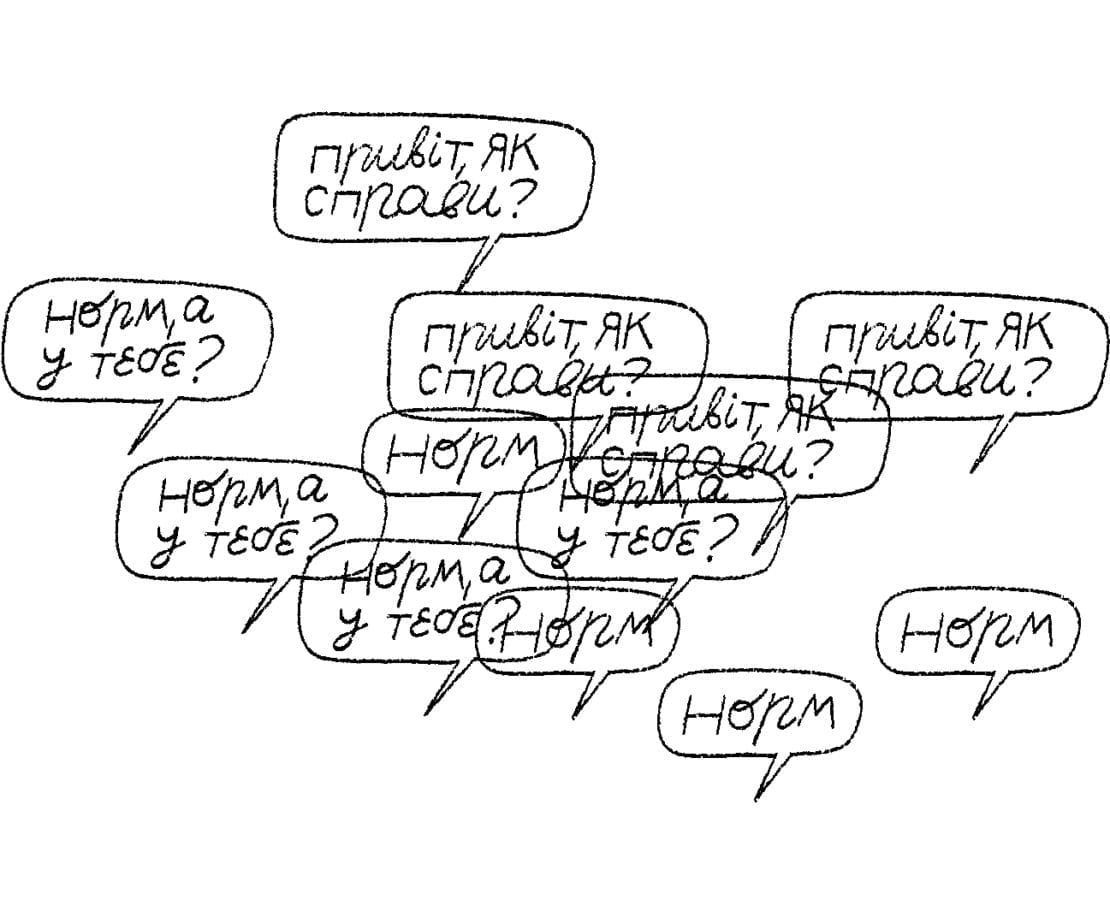 привіт, як
справи?
норм, а
у тебе?
привіт, як
справи?
привіт, як
справи?
привіт, як
справи?
норм
норм, а
у тебе?
норм, а
у тебе?
норм, а
у тебе?
норм
норм
норм